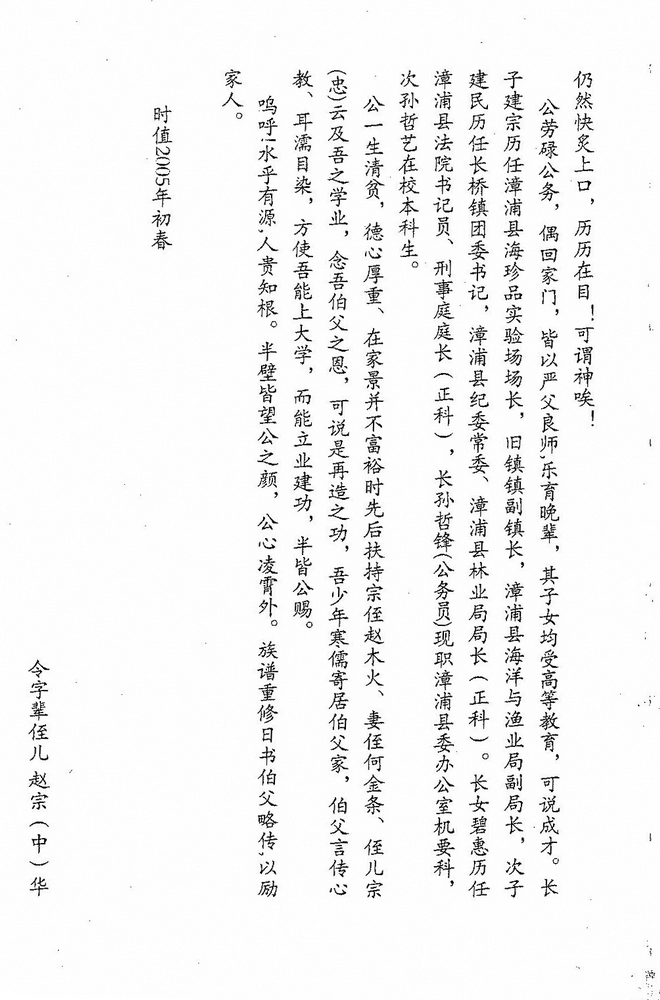 仍然快炙上口，历历在目！可谓神唉！
公劳碌公务，偶回家门，皆以严父良师，乐育晚辈，其子女均受高等教育，可说成才。长
子建宗历任漳浦县海珍品实验场场长，旧镇镇副镇长，漳浦县海洋与渔业局副局长，次子
建民历任长桥镇团委书记，漳浦县纪委常委、漳浦县林业局局长（正科）。长女碧惠历任
漳浦县法院书记员、刑事庭庭长（正科），长孙哲锋(公务员)现职漳浦县委办公室机要科，
次孙哲艺在校本科生。
公一生清贫，德心厚重、在家景并不富裕时先后扶持宗侄赵木火、妻侄何金条、侄儿宗
(忠)云及吾之学业，念吾伯父之恩，可说是再造之功，吾少年寒儒寄居伯父家，伯父言传心
教、耳濡目染，方使吾能上大学，而能立业建功，半皆公赐。
呜呼!水乎有源,人贵知根。半壁皆望公之颜，公心凌霄外。族谱重修日书伯父略传,以励
家人。
时值2005年初春
令字辈侄儿赵宗（中）华